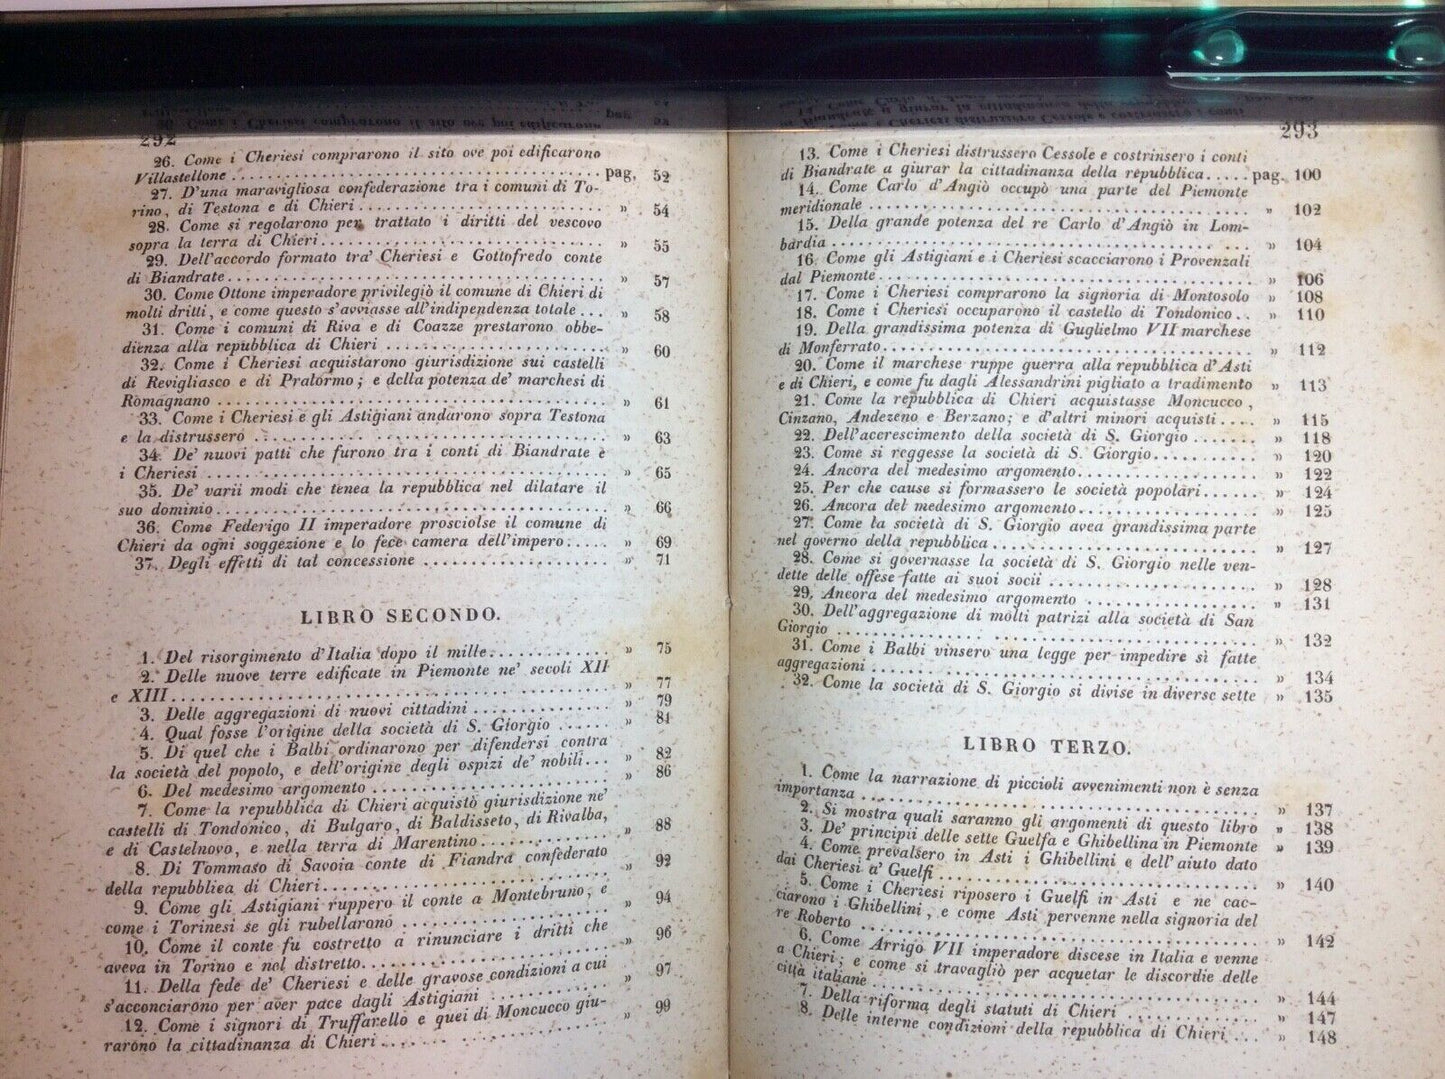 292
26. Come i Cheriesi comprarono il sito ove poi edificarono
Villastellone . . . . . . . . . . . . . . . . . . . . pag. 52
27. D'una maravigliosa confederazione tra i comuni di To-
rino, di Testona e di Chieri . . . . . . . . . . . . » 54
28. Come si regolarono per trattato i diritti del vescovo
sopra la terra di Chieri . . . . . . . . . . . . » 55
29. Dell'accordo formato tra' Cheriesi e Gottofredo conte
di Biandrate . . . . . . . . . . . . » 57
30. Come Ottone imperadore privilegiò il comune di Chieri di
molti dritti, e come questo s'avviasse all'indipendenza totale . . . » 58
31. Come i comuni di Riva e di Coazze prestarono obbe-
dienza alla repubblica di Chieri . . . . . . . . . . . . » 60
32. Come i Cheriesi acquistarono giurisdizione sui castelli
di Revigliasco e di Pralormo; e della potenza de' marchesi di
Romagnano . . . . . . . . . . . . » 61
33. Come i Cheriesi e gli Astigiani andarono sopra Testona
e la distrussero . . . . . . . . . . . . » 63
34. De' nuovi patti che furono tra i conti di Biandrate e
i Cheriesi . . . . . . . . . . . . » 65
35. De' varii modi che tenea la repubblica nel dilatare il
suo dominio . . . . . . . . . . . . » 66
36. Come Federigo II imperadore prosciolse il comune di
Chieri da ogni soggezione e lo fece camera dell'impero . . . . . » 69
37. Degli effetti di tal concessione . . . . . . . . . . . . » 71
LIBRO SECONDO.
1. Del risorgimento d'Italia dopo il mille . . . . . . . . . . . . » 75
2. Delle nuove terre edificate in Piemonte ne' secoli XII
e XIII . . . . . . . . . . . . » 77
3. Delle aggregazioni di nuovi cittadini . . . . . . . . . . . . » 79
4. Qual fosse l'origine della società di S. Giorgio . . . . . . » 81
5. Di quel che i Balbi ordinarono per difendersi contra
la società del popolo, e dell'origine degli ospizi de' nobili . . . » 82
6. Del medesimo argomento . . . . . . . . . . . . » 86
7. Come la repubblica di Chieri acquistò giurisdizione ne'
castelli di Tondonico, di Bulgaro, di Baldisseto, di Rivalba,
e di Castelnovo, e nella terra di Marentino . . . . . . . . . » 88
8. Di Tommaso di Savoia conte di Fiandra confederato
della repubblica di Chieri . . . . . . . . . . . . » 92
9. Come gli Astigiani ruppero il conte a Montebruno, e
come i Torinesi se gli rubellarono . . . . . . . . . . . . » 94
10. Come il conte fu costretto a rinunciare i dritti che
aveva in Torino e nel distretto . . . . . . . . . . . . » 96
11. Della fede de' Cheriesi e delle gravose condizioni a cui
s'acconciarono per aver pace dagli Astigiani . . . . . . . . . » 97
12. Come i signori di Truffarello e quei di Moncucco giu-
rarono la cittadinanza di Chieri . . . . . . . . . . . . » 99
293
13. Come i Cheriesi distrussero Cessole e costrinsero i conti
di Biandrate a giurar la cittadinanza della repubblica . . . . . pag. 100
14. Come Carlo d'Angiò occupò una parte del Piemonte
meridionale . . . . . . . . . . . . » 102
15. Della grande potenza del re Carlo d'Angiò in Lom-
bardia . . . . . . . . . . . . » 104
16. Come gli Astigiani e i Cheriesi scacciarono i Provenzali
dal Piemonte . . . . . . . . . . . . » 106
17. Come i Cheriesi comprarono la signoria di Montosolo » 108
18. Come i Cheriesi occuparono il castello di Tondonico . . » 110
19. Della grandissima potenza di Guglielmo VII marchese
di Monferrato . . . . . . . . . . . . » 112
20. Come il marchese ruppe guerra alla repubblica d'Asti
e di Chieri, e come fu dagli Alessandrini pigliato a tradimento » 113
21. Come la repubblica di Chieri acquistasse Moncucco,
Cinzano, Andezeno e Berzano; e d'altri minori acquisti . . . . » 115
22. Dell'accrescimento della società di S. Giorgio . . . . . . . » 118
23. Come si reggesse la società di S. Giorgio . . . . . . . . . » 120
24. Ancora del medesimo argomento . . . . . . . . . . . . » 122
25. Per che cause si formassero le società popolari . . . . . . » 124
26. Ancora del medesimo argomento . . . . . . . . . . . . » 125
27. Come la società di S. Giorgio avea grandissima parte
nel governo della repubblica . . . . . . . . . . . . » 127
28. Come si governasse la società di S. Giorgio nelle ven-
dette delle offese fatte ai suoi socii . . . . . . . . . . . . » 128
29. Ancora del medesimo argomento . . . . . . . . . . . . » 131
30. Dell'aggregazione di molti patrizi alla società di San
Giorgio . . . . . . . . . . . . » 132
31. Come i Balbi vinsero una legge per impedire sì fatte
aggregazioni . . . . . . . . . . . . » 134
32. Come la società di S. Giorgio si divise in diverse sette » 135
LIBRO TERZO.
1. Come la narrazione di piccioli avvenimenti non è senza
importanza . . . . . . . . . . . . » 137
2. Si mostra quali saranno gli argomenti di questo libro » 138
3. De' principii delle sette Guelfa e Ghibellina in Piemonte » 139
4. Come prevalsero in Asti i Ghibellini e dell'aiuto dato
dai Cheriesi a' Guelfi . . . . . . . . . . . . » 140
5. Come i Cheriesi riposero i Guelfi in Asti e ne' cac-
ciarono i Ghibellini, e come Asti pervenne nella signoria del
re Roberto . . . . . . . . . . . . » 142
6. Come Arrigo VII imperadore discese in Italia e venne
a Chieri; e come si travagliò per acquetar le discordie delle
città italiane . . . . . . . . . . . . » 144
7. Della riforma degli statuti di Chieri . . . . . . . . . . . . » 147
8. Delle interne condizioni della repubblica di Chieri . . . » 148